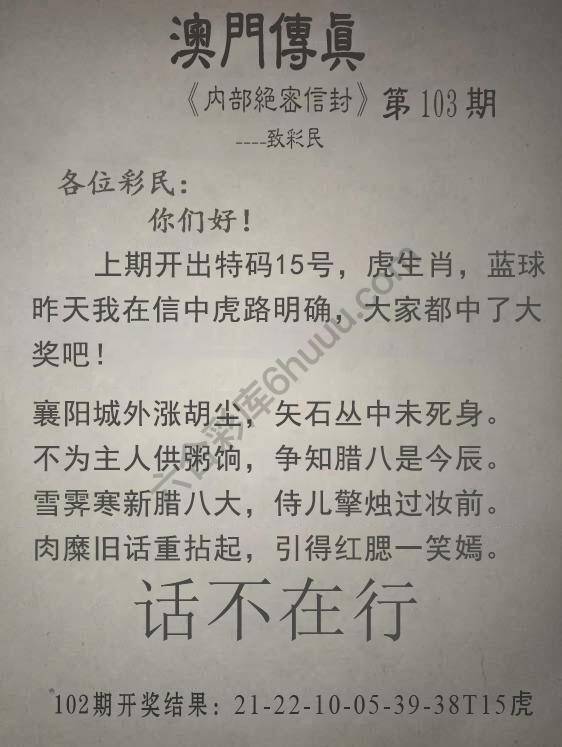 澳門傳眞
《内部絕密信封》第103期
----致彩民
各位彩民：
你们好！
上期开出特码15号，虎生肖，蓝球
昨天我在信中虎路明确，大家都中了大
奖吧！
襄阳城外涨胡尘，矢石丛中未死身。
不为主人供粥饷，争知腊八是今辰。
雪霁寒新腊八大，侍儿擎烛过妆前。
肉糜旧话重拈起，引得红腮一笑嫣。
话不在行
102期开奖结果：21-22-10-05-39-38T15虎
六合彩库6huuu.com